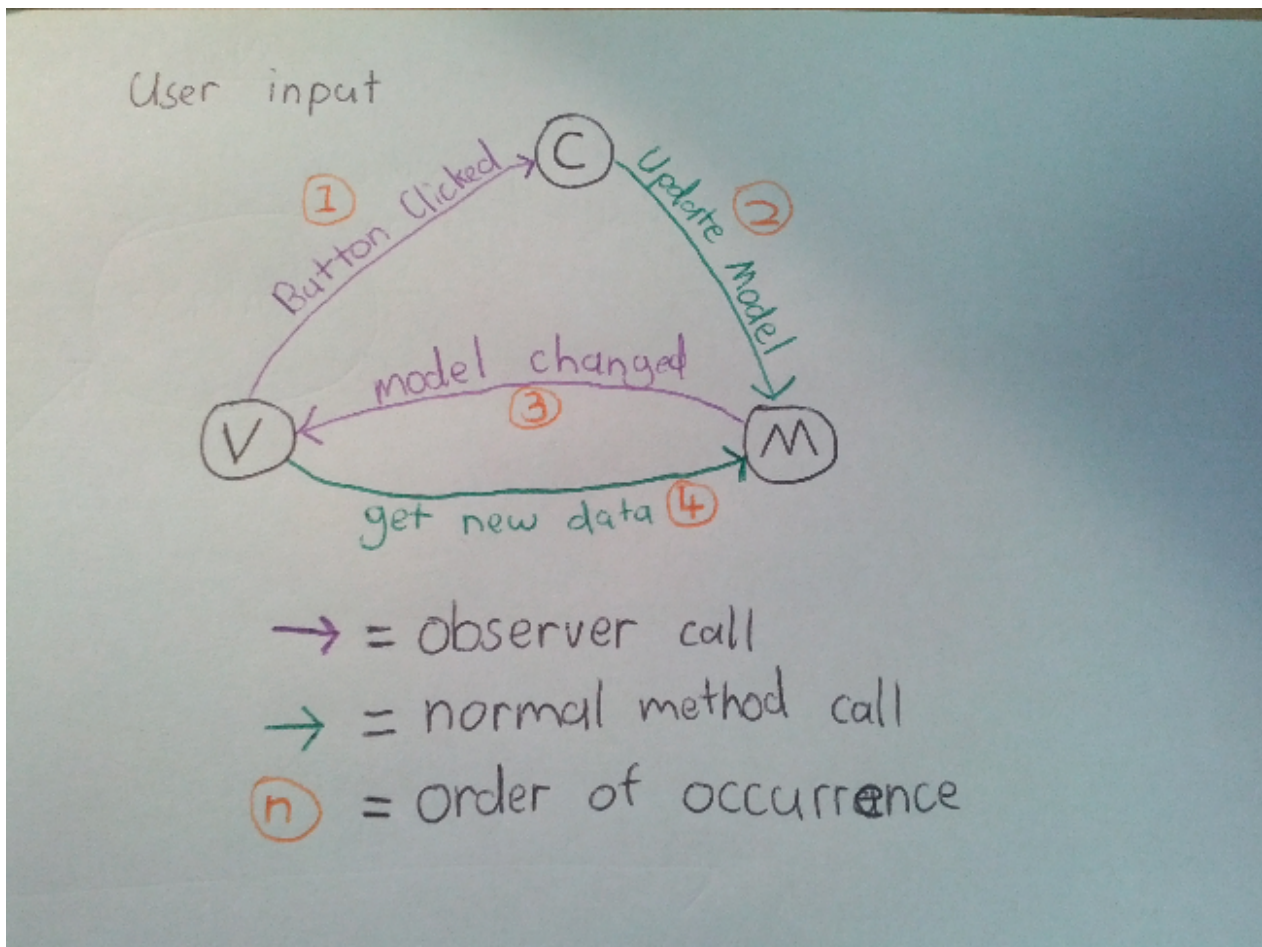 User input
C
1
Button Clicked
Update Model
2
model changed
3
V
M
get new data 4
→ = observer call
→ = normal method call
n = order of occurrence